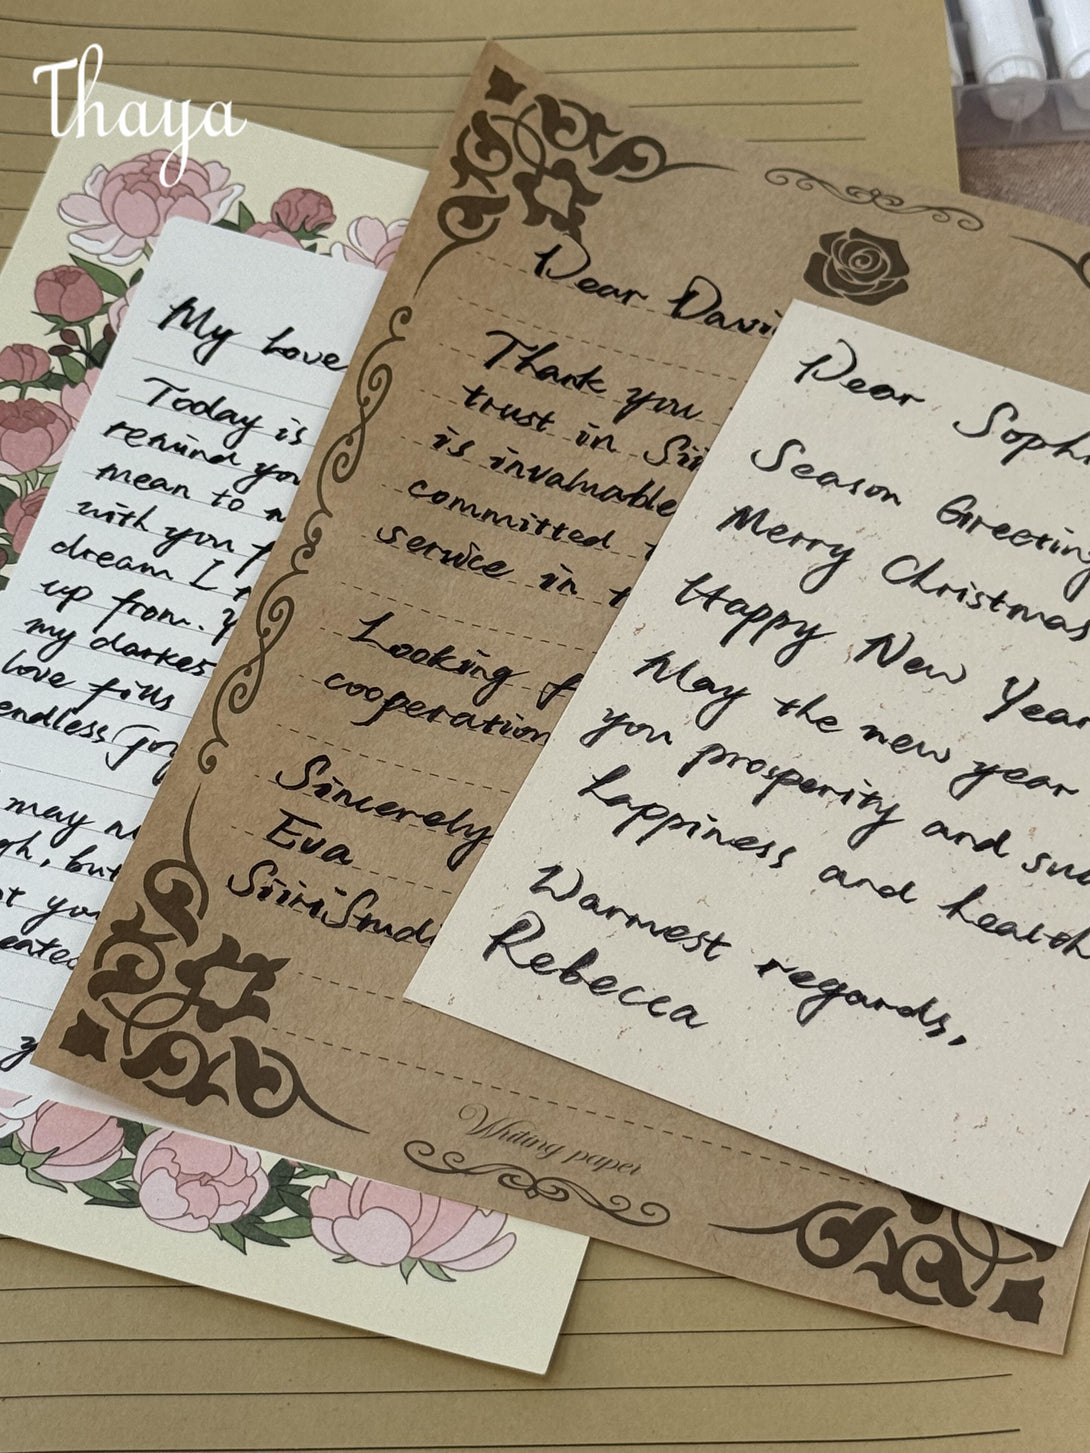 Thaya
My Love
Today is
remind you
mean to
with you
dream I
up from.
my darkes
love fills
endless joy
may
gh, but
t you
eated
Dear Davi
Thank you
trust in Sii
is invaluable
committed
service in
Looking f
cooperation
Sincerely
Eva
SiiriStud
Writing paper
Dear Soph
Season Greeting
Merry Christmas
Happy New Year
May the new year
you prosperity and su
happiness and health
Warmest regards,
Rebecca